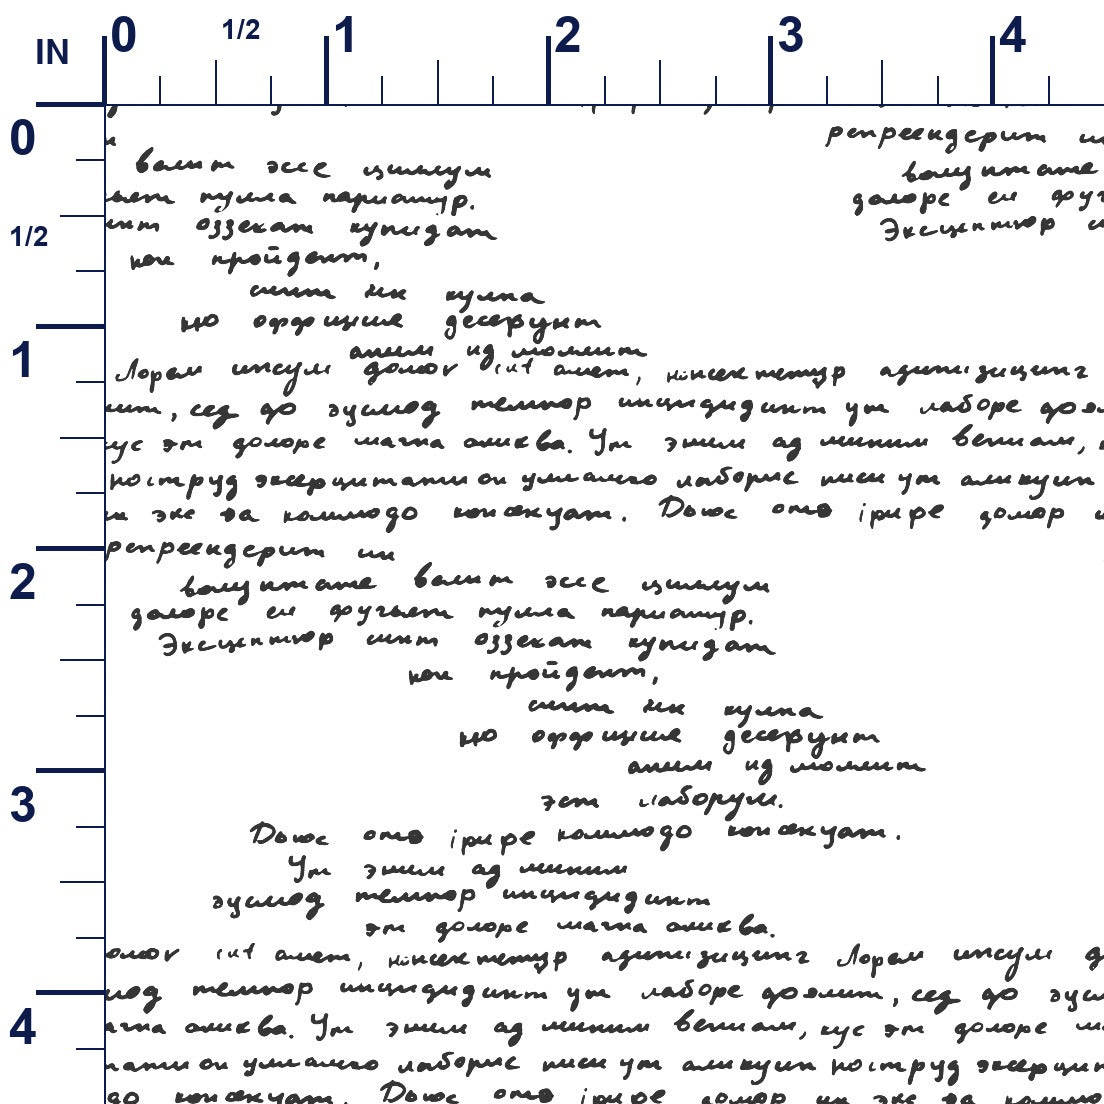 IN 0 1/2 1 2 3 4
0
репреендерит
велит эссе циллум волуптате
нулла париатур. долоре еи
оззекат купидат Эксцептеор
1/2
нон пройдент,
синт ин кулпа
оффициа десерунт
1
аним ид моллит
Лорем ипсум долор сит амет, адиписицинг
сед до эусмод темпор инцидидунт ут лаборе
эт долоре магна аликва. Ут эним ад миним вениам,
ноструд эксерцитатион улламко лаборис ниси ут аликуип
экс еа коммодо консекуат. Дюис ауте ируре долор
2
репреендерит ин
волуптате велит эссе циллум
долоре еи фугьет нулла париатур.
Эксцептеор синт оззекат купидат
нон пройдент,
синт ин кулпа
оффициа десерунт
аним ид моллит
3
эст лаборум.
Дюис ауте ируре коммодо консекуат.
Ут эним ад миним
эусмод темпор инцидидунт
эт долоре магна аликва.
сит амет, адиписицинг Лорем ипсум
темпор инцидидунт ут лаборе сед до
4
аликва. Ут эним ад миним вениам, эт долоре
улламко лаборис ниси ут аликуип ноструд
консекуат. Дюис ауте ируре долор ин экс еа